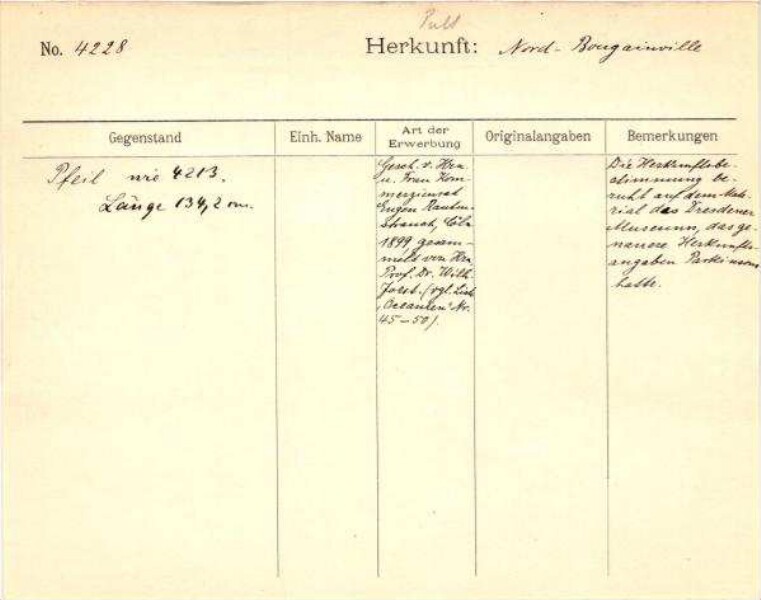 Pult
No. 4228 Herkunft: Nord-Bougainville
Gegenstand Einh. Name Art der Erwerbung Originalangaben Bemerkungen
Pfeil wie 4213.
Länge 134,2 cm.
Gesch. v. Hrn.
u. Frau Kom-
merzienrat
Eugen Rauten-
strauch, Cöln
1899, gesam-
melt von Hrn
Prof. Dr. Wilh.
Joest. (vgl. List.
"Oceanien" Nr.
45–50).
Die Herkunftsbe-
stimmung be-
ruht auf dem Mate-
rial des Dresdener
Museums, das ge-
nauere Herkunfts-
angaben Parkinsons
hatte.